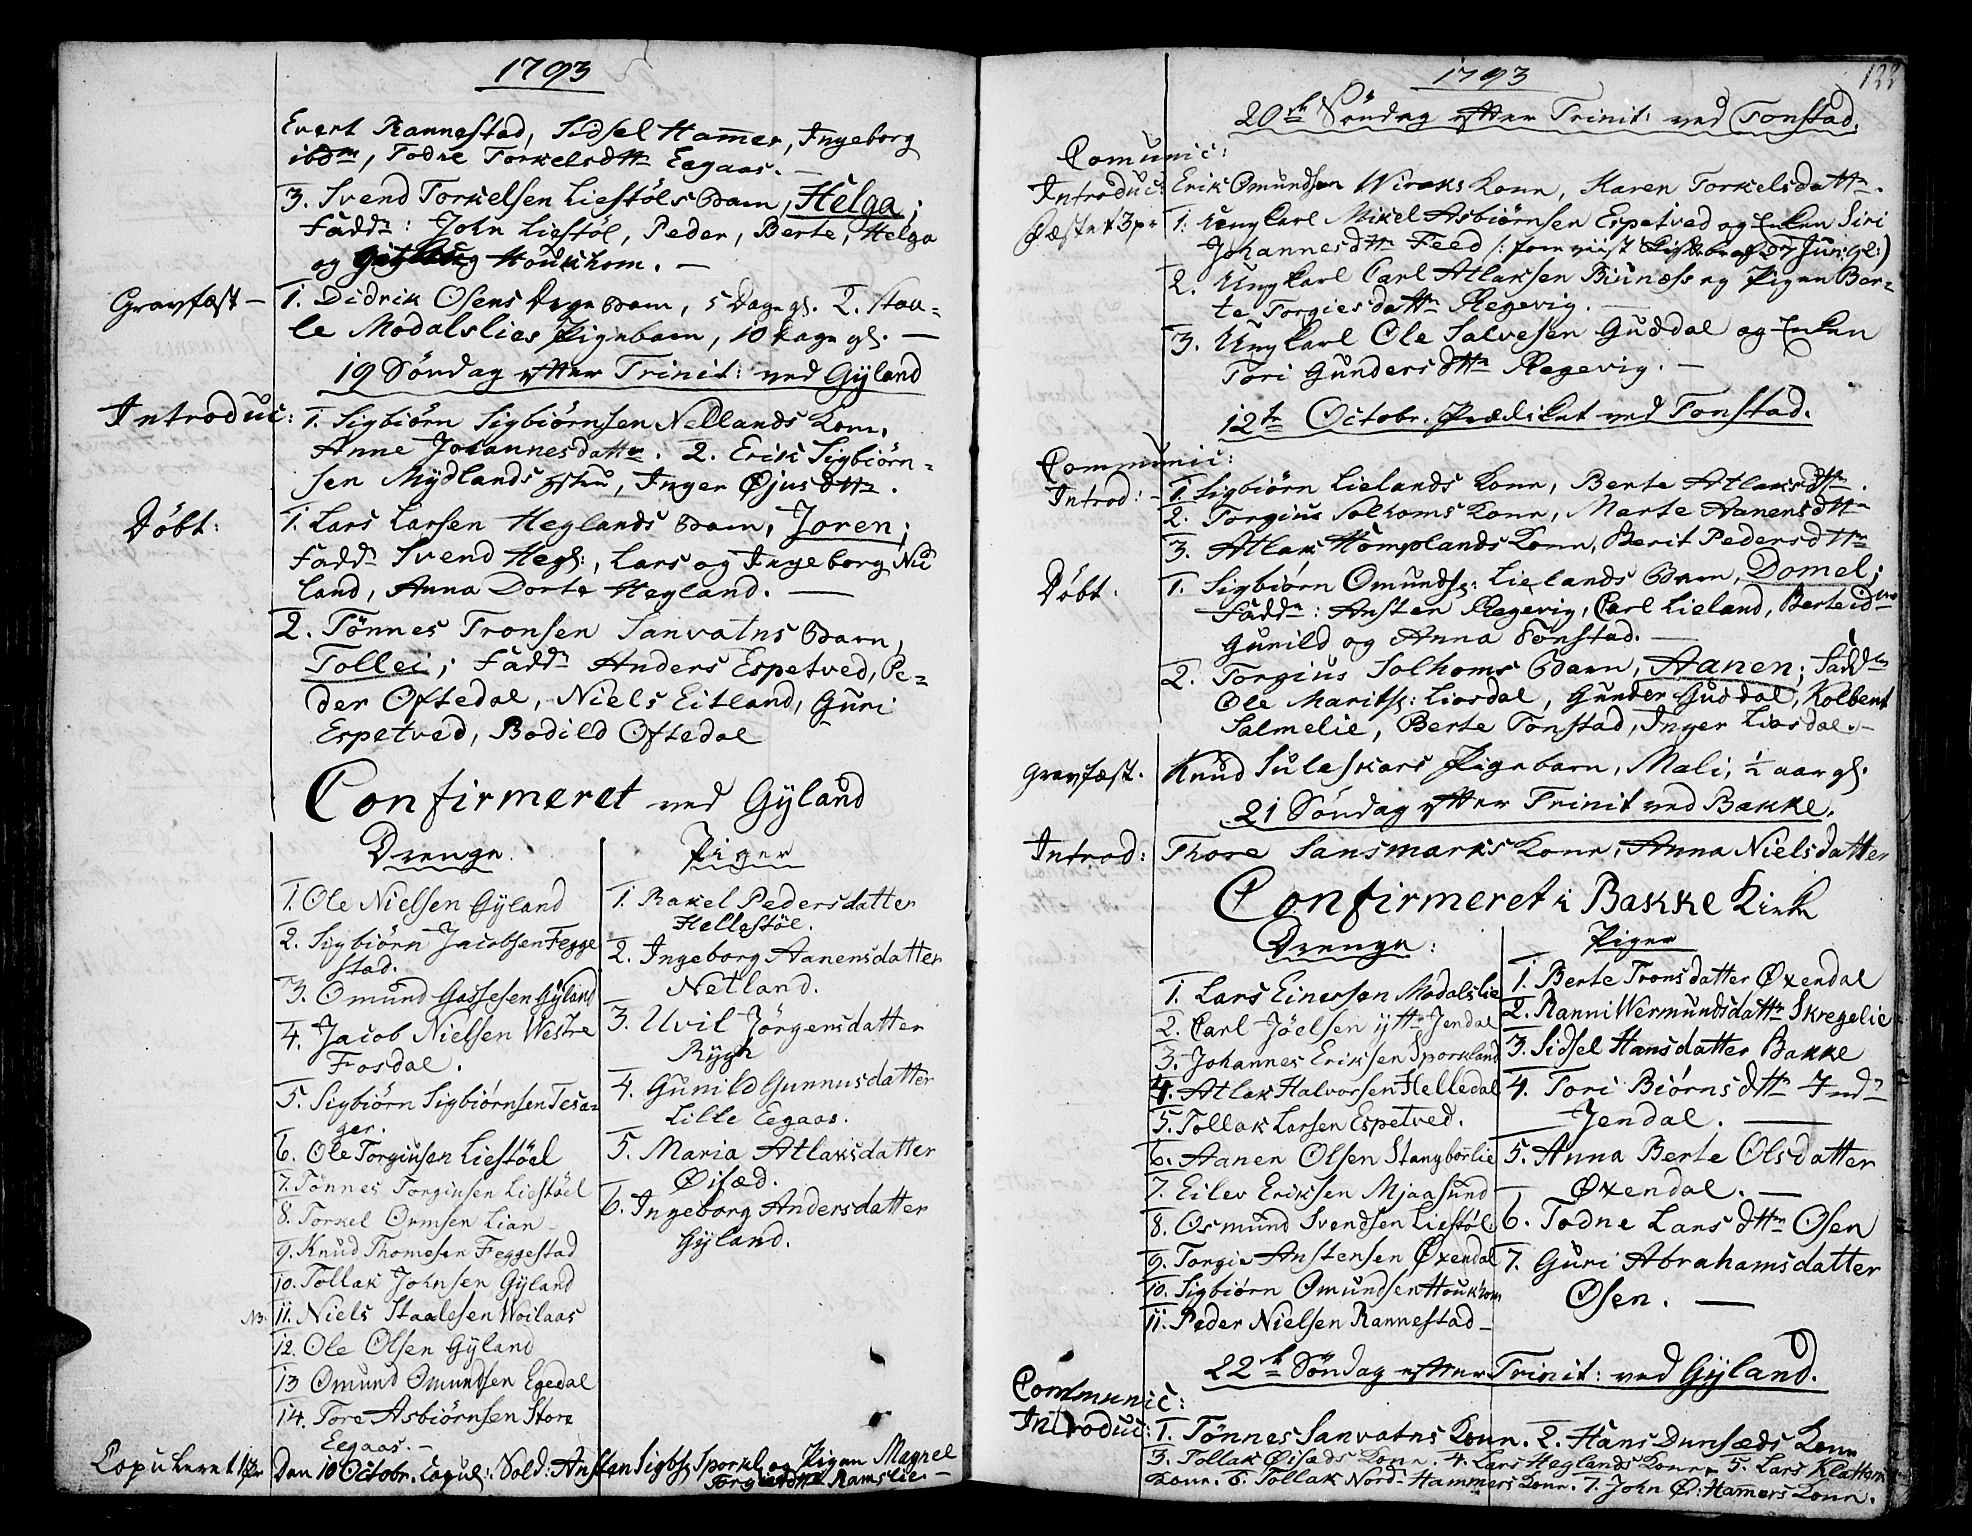 1793
Evert Rannestad, Sidsel Hamer, Ingeborg
ibdm, Todne Torkelsdttr Eegaas. —
3. Svend Torkelsen Liestöls Barn, Helga;
Faddr: John Liestöl, Peder, Berte, Helga
og Houkhom. —
Gravfæst — 1. Didrik Osens Barn, 5 Dage gl. 2. Staa-
le Modalslies Pigebarn, 10 Dage gl. —
19 Söndag efter Trinit: ved Gyland
Introduc: 1. Sigbiörn Sigbiörnsen Nellands Kone,
Anne Johannesdatter. 2. Erik Sigbiörn-
sen Mydlands Hstru, Inger Øjusdttr.
Döbt: 1. Lars Larsen Heglands Barn, Joren;
Faddr Svend Hegl:, Lars og Ingeborg Nu
land, Anna Dorte Hegland. —
2. Tönnes Tronsen Sanvatns Barn,
Tollei; Faddr Anders Espetved, Pe-
der Oftedal, Niels Eitland, Guri
Espetved, Bodild Oftedal
Confirmeret ved Gyland
Drenge.
1. Ole Nielsen Gyland
2. Sigbiörn Jacobsen Fegge
stad.
3. Omund Gassesen Gyland
4. Jacob Nielsen Westre
Fosdal.
5. Sigbiörn Sigbiörnsen Tesa-
ger.
6. Ole Torgiusen Liestöel
7. Tönnes Torgiusen Liestöel
8. Torkel Ormsen Lian
9. Knud Thomesen Feggestad
10. Tollak Johnsen Gyland
NB. 11. Niels Staalesen Woilaas
12. Ole Olsen Gyland
13 Omund Omundsen Egedal
14. Tore Asbiörnsen Store
Eegaas. —
Piger
1. Rakel Pedersdatter
Hellestöl.
2. Ingeborg Aanensdatter
Netland.
3. Uvil Jörgensdatter
Rygh
4. Gunild Gunnusdatter
Lille Eegaas.
5. Maria Atlaksdatter
Øisæd.
6. Ingeborg Andersdatter
Gyland.
Copuleret 1 pr Den 10 Octobr. Copul: Sold: Ansten Sigbs: Sporkl: og Pigen Magnel
Torgiusdttr Ramslie —
1793
122
20de Söndag efter Trinit: ved Tonstad.
Comunic:
Introduc: Erik Omundsen Wiraks Kone, Karen Torkelsdattr.
Fæstet 3 pr 1. Ungkarl Mikel Asbiörnsen Espetved og Enken Siri
Johannesdttr Feed (: som 27 Jun: gl:)
2. Ungkarl Carl Atlaksen Biunæss og Pigen Ber-
te Torgiesdattr Regevig. —
3. Ungkarl Ole Salvesen Guddal og Enken
Tori Gundersdttr Regevig. —
12te Octobr. Prædiket ved Tonstad.
Communic:
Introd: — 1. Sigbiörn Lielands Kone, Berte Atlaksdttr.
2. Torgius Solhoms Kone, Marte Aanensdttr
3. Atlak Homplands Kone, Berit Pedersdttr
Döbt. 1. Sigbiörn Omundss: Lielands Barn, Domel;
Faddr: Ansten Regevig, Carl Lieland, Berte idm
Gunild og Anna Tonstad. —
2. Torgius Solhoms Barn, Aanen; Faddr
Ole Marits: Liosdal, Gunder Guddal, Kolbent
Salmelie, Berte Tonstad, Inger Liosdal. —
Gravfæst. Knud Suleskars Pigebarn, Mali, ½ aar gl.
21 Söndag efter Trinit ved Bakke.
Introd: Thore Sansmarks Kone, Anna Nielsdatter
Confirmeret i Bakke Kirke
Drenge:
1. Lars Einersen Modalslie
2. Carl Jöelsen ytt: Jendal
3. Johannes Eriksen Sporkland
4. Atlak Halvorsen Helledal
5. Tollak Larsen Espetved.
6. Aanen Olsen Stangborlie
7. Eilev Eriksen Mjaasund
8. Osmund Svendsen Liestöl
9. Torgie Anstensen Øxendal
10. Sigbiörn Omundsen Houkhom
11. Peder Nielsen Rannestad —
Piger
1. Berte Tronsdatter Øxendal
2. Ranni Wermundsdattr Skregelie
3. Sidsel Hansdatter Bakke
4. Tori Biörnsdttr Indr
Jendal. —
5. Anna Berte Olsdatter
Øxendal. —
6. Todne Larsdttr Osen
7. Guri Abrahamsdatter
Osen. —
22de Söndag efter Trinit: ved Gyland.
Communic:
Introduc: 1. Tönnes Sanvatns Kone. 2. Hans Dunsæds Kone
3. Tollak Øisæds Kone. 4. Lars Heglands Kone. 5. Lars
Kone. 6. Tollak Nord-Hammers Kone. 7. John Ø: Hamers Kone.